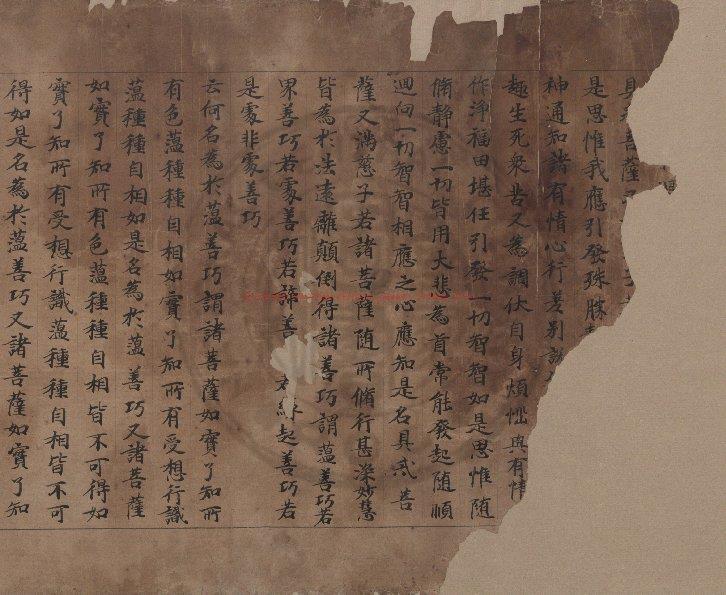 具
是思惟我應引發殊勝
神通知諸有情心行差別
趣生死衆苦又為調伏自身煩惱與有情
作淨福田堪任引發一切智智如是思惟随
脩静慮一切皆用大悲為首常能發起随順
迴向一切智智相應之心應知是名具戒菩
薩又滿慈子若諸菩薩随所脩行甚深妙慧
皆為於法遠離顛倒得諸善巧謂蕴善巧若
界善巧若處善巧若諦善 緣起善巧若
是處非處善巧
云何名為於蕴善巧謂諸菩薩如實了知所
有色蕴種種自相如實了知所有受想行識
蕴種種自相如是名為於蕴善巧又諸菩薩
如實了知所有色蕴種種自相皆不可得如
實了知所有受想行識蕴種種自相皆不可
得如是名為於蕴善巧又諸菩薩如實了知